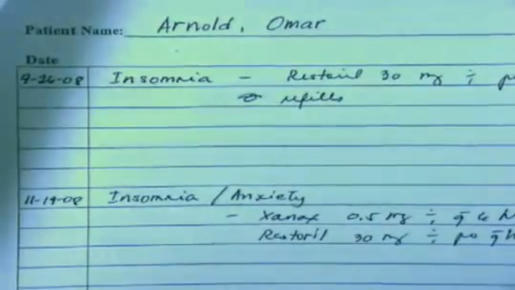 Patient Name: Arnold, Omar
Date
9-26-08 Insomnia - Restoril 30 mg ÷ p
refills
11-19-08 Insomnia / Anxiety
- Xanax 0.5 mg ÷ q̄ 6 h
Restoril 30 mg ÷ po q̄ h